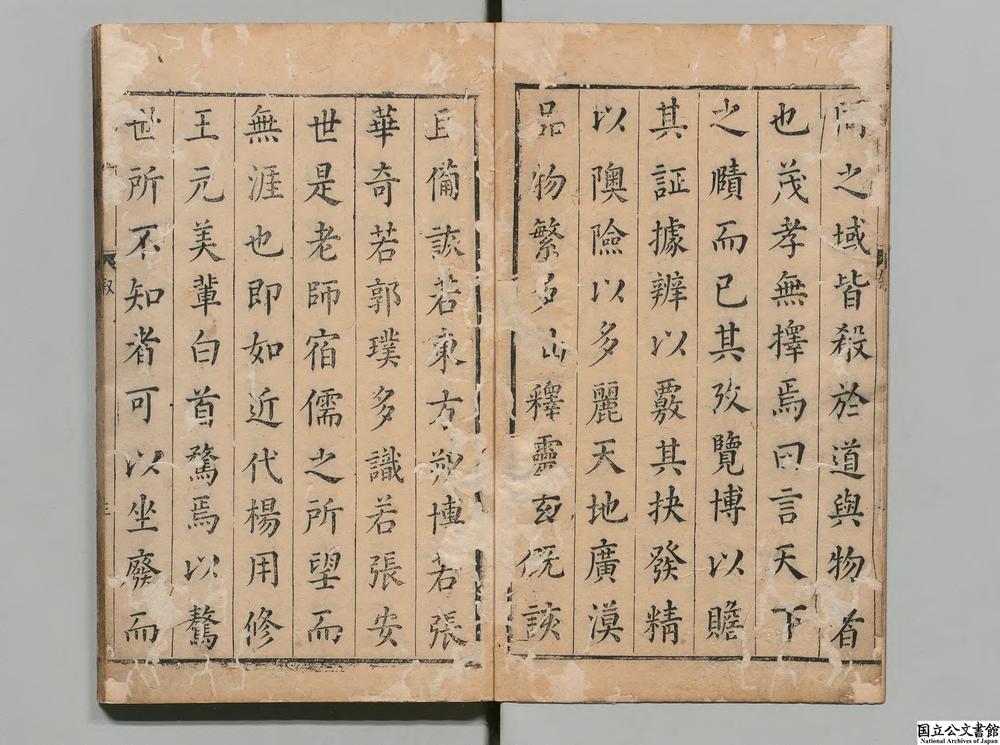 問之域皆殺於道與物者
也茂孝無擇焉曰言天下
之賾而已其攷覽博以贍
其証據辨以覈其抉發精
以隩險以多麗天地廣漠
品物繁多仙釋靈玄既該
且備詼若東方朔博若張
華奇若郭璞多識若張安
世是老師宿儒之所望而
無涯也即如近代楊用修
王元美輩白首騖焉以驁
世所不知者可以坐廢而
叙
三
国立公文書館
National Archives of Japan